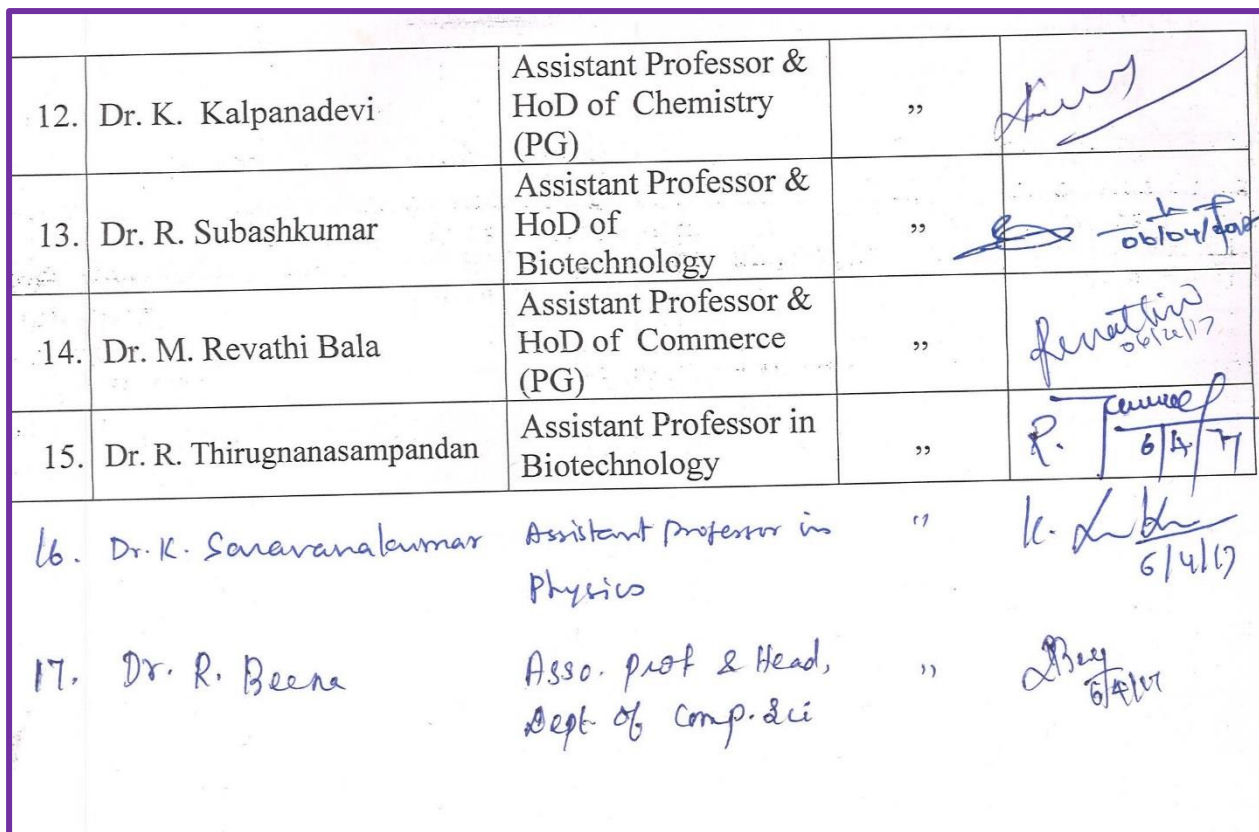 12. Dr. K. Kalpanadevi Assistant Professor &
HoD of Chemistry
(PG) ,,
13. Dr. R. Subashkumar Assistant Professor &
HoD of
Biotechnology ,,
14. Dr. M. Revathi Bala Assistant Professor &
HoD of Commerce
(PG) ,,
15. Dr. R. Thirugnanasampandan Assistant Professor in
Biotechnology ,, R.
6/4/17
16. Dr. K. Saravanakumar Assistant professor in ,, K.
Physics 6/4/17
17. Dr. R. Beena Asso. prof & Head, ,,
Dept. of Comp. Sci 6/4/17